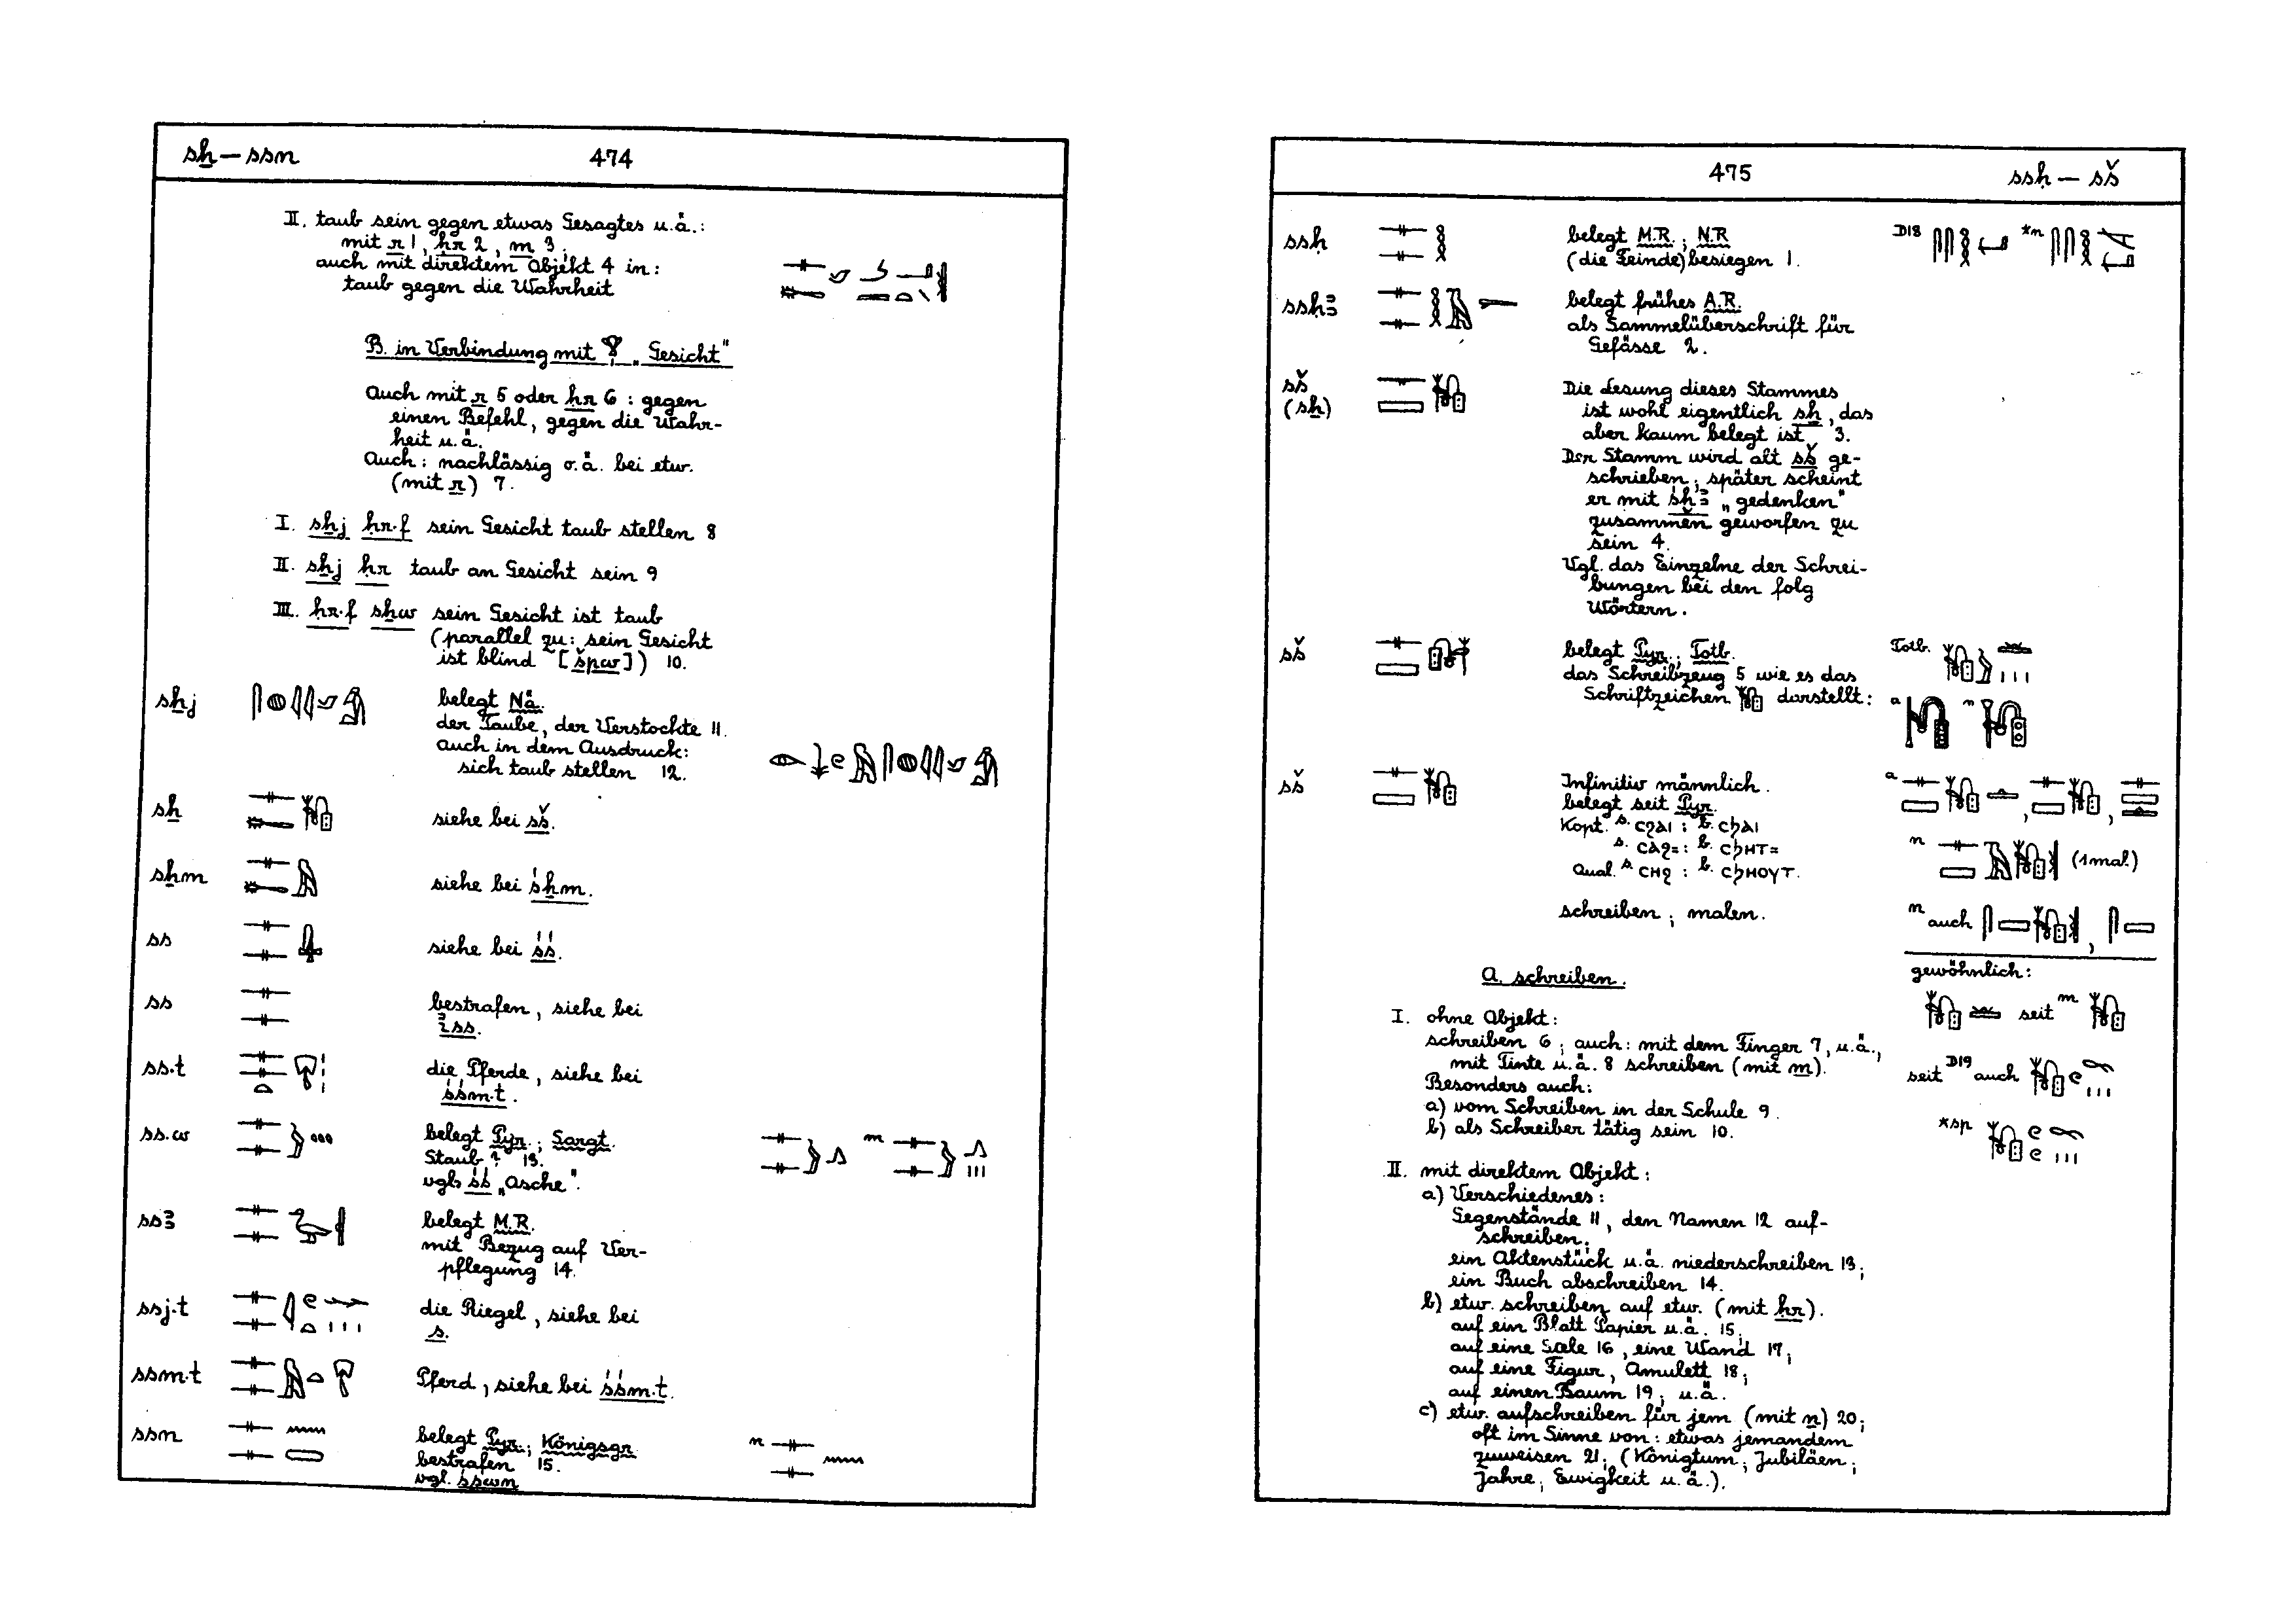 sẖ — ssn 474
II. taub sein gegen etwas Gesagtes u.ä.:
mit r 1, ḥr 2, m 3.
auch mit direktem Objekt 4 in:
taub gegen die Wahrheit
B. in Verbindung mit „Gesicht"
Auch mit r 5 oder ḥr 6 : gegen
einen Befehl, gegen die Wahr-
heit u.ä.
Auch: nachlässig o.ä. bei etw.
(mit r) 7.
I. sẖj ḥr·f sein Gesicht taub stellen 8
II. sẖj ḥr taub an Gesicht sein 9
III. ḥr·f sẖw sein Gesicht ist taub
(parallel zu: sein Gesicht
ist blind [špw]) 10.
sẖj belegt Nä.
der Taube, der Verstockte 11.
auch in dem Ausdruck:
sich taub stellen 12.
sẖ siehe bei sš.
sẖm siehe bei śẖm.
ss siehe bei śś.
ss bestrafen, siehe bei
ꜣss.
ss·t die Pferde, siehe bei
śśm·t.
ss·w belegt Pyr.; Sargt. m
Staub? 13.
vgl. śś „Asche".
ssꜣ belegt M.R.
mit Bezug auf Ver-
pflegung 14.
ssj·t die Riegel, siehe bei
s.
ssm·t Pferd, siehe bei śśm·t.
ssn belegt Pyr.; Königsgr. n
bestrafen 15.
vgl. sswn
475 ssḥ — sš
ssḥ belegt M.R.; N.R. D18 *n
(die Feinde) besiegen 1.
ssḥꜣ belegt frühes A.R.
als Sammelüberschrift für
Gefässe 2.
sš Die Lesung dieses Stammes
(sẖ) ist wohl eigentlich sẖ, das
aber kaum belegt ist 3.
Der Stamm wird alt sš ge-
schrieben; später scheint
er mit śḫꜣ „gedenken"
zusammen geworfen zu
sein 4.
Vgl. das Einzelne der Schrei-
bungen bei den folg
Wörtern.
sš belegt Pyr.; Totb. Totb.
das Schreibzeug 5 wie es das
Schriftzeichen darstellt: a n
sš Infinitiv männlich. a , ,
belegt seit Pyr.
Kopt. s. ⲥϩⲁⲓ : b. ⲥϧⲁⲓ
s. ⲥⲁϩ⸗ : b. ⲥϧⲏⲧ⸗ n (1mal.)
Qual. s. ⲥⲏϩ : b. ⲥϧⲏⲟⲩⲧ.
schreiben; malen. n auch ,
A. schreiben. gewöhnlich:
seit m
I. ohne Objekt:
schreiben 6; auch: mit dem Finger 7, u.ä.,
mit Tinte u.ä. 8 schreiben (mit m). seit D19 auch
Besonders auch:
a) vom Schreiben in der Schule 9.
b) als Schreiber tätig sein 10. *sp
II. mit direktem Objekt:
a) Verschiedenes:
Gegenstände 11, den Namen 12 auf-
schreiben;
ein Aktenstück u.ä. niederschreiben 13;
ein Buch abschreiben 14.
b) etw. schreiben auf etw. (mit ḥr).
auf ein Blatt Papier u.ä. 15;
auf eine Säule 16, eine Wand 17;
auf eine Figur, Amulett 18;
auf einen Baum 19; u.ä.
c) etw. aufschreiben für jem (mit n) 20;
oft im Sinne von: etwas jemandem
zuweisen 21; (Königtum; Jubiläen;
Jahre; Ewigkeit u.ä.).